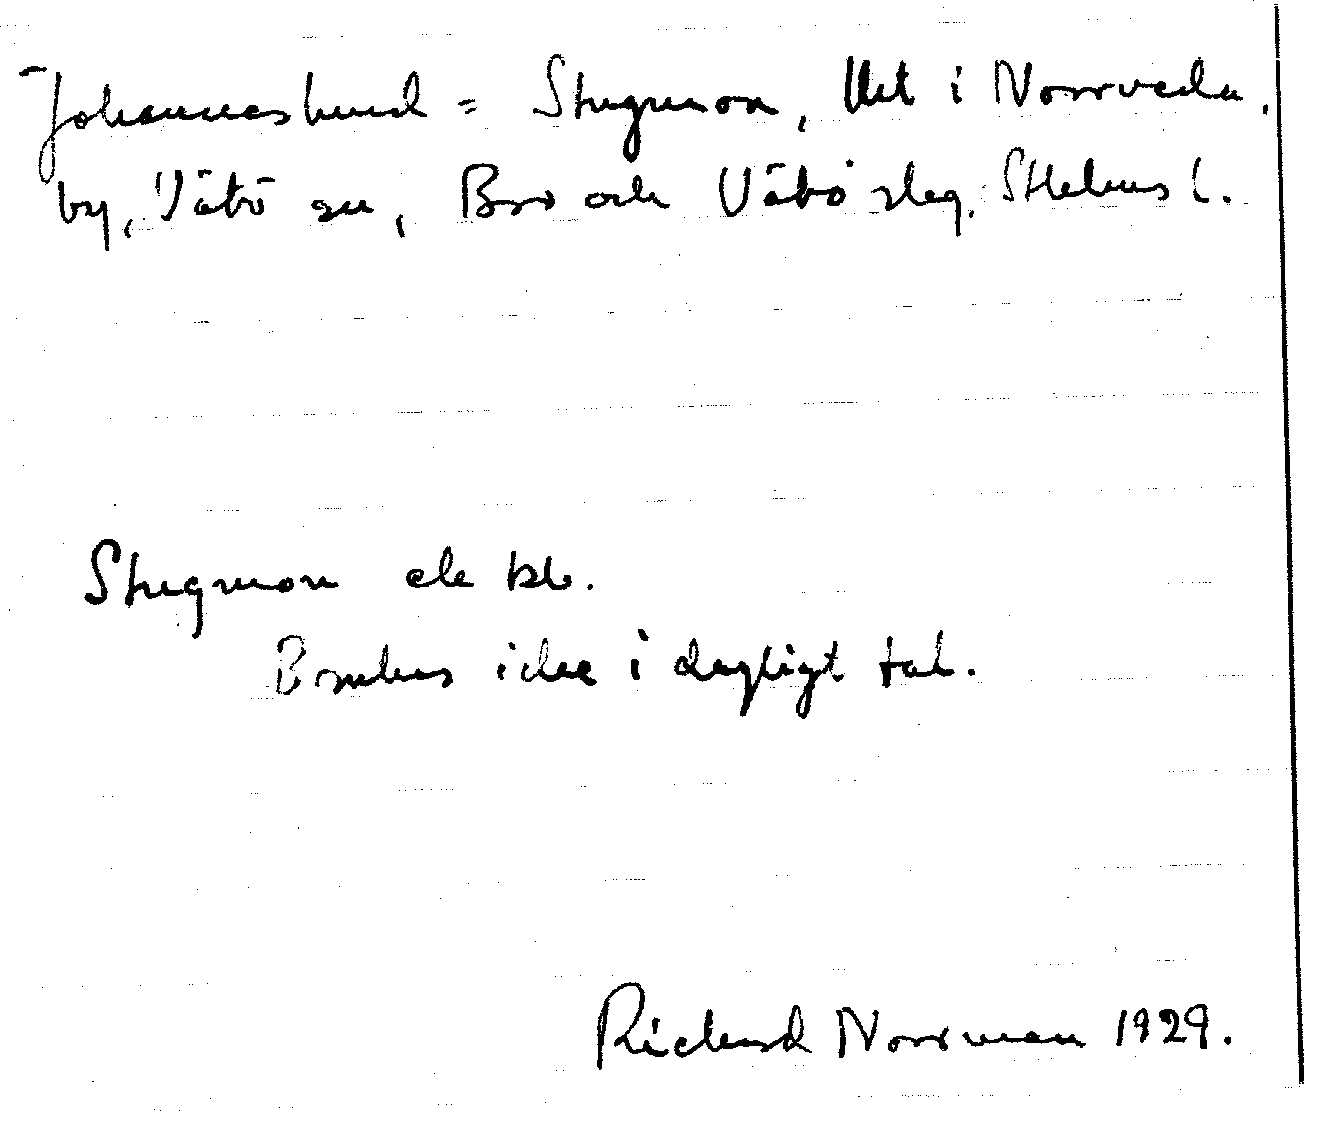 Johanneslund = Stugmon, lht i Norrveda
by, Vätö sn, Bro och Vätö slag, Sthlms l.
Stugmon ek bb.
Brukas icke i dagligt tal.
Rickard Norrman 1929.